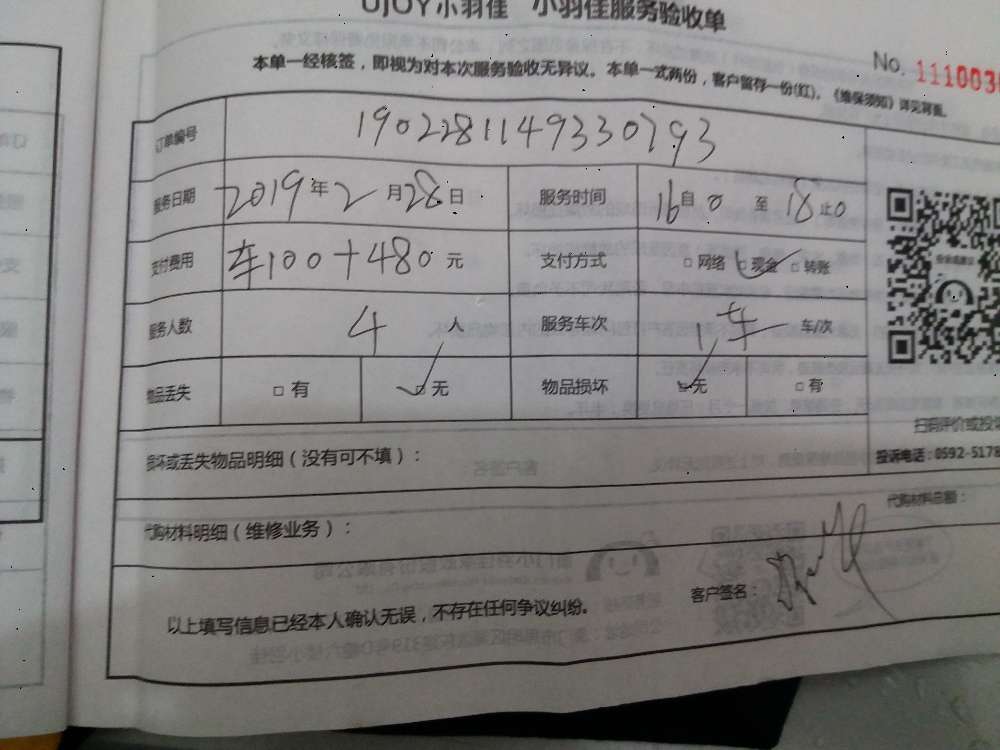 UJOY小羽佳 小羽佳服务验收单
No. 111003
本单一经核签，即视为对本次服务验收无异议。本单一式两份，客户留存一份(红)。《维保须知》详见背面。
订单编号 1902281149330793
服务日期 2019年2月28日 服务时间 16自0至18止0
支付费用 车100+480元 支付方式 □网络 □现金 □转账
服务人数 4人 服务车次 1车 车/次
物品丢失 □有 □无 物品损坏 □无 □有
损坏或丢失物品明细（没有可不填）：
扫码评价或投
投诉电话：0592-5178
代购材料明细（维修业务）：
代购材料总额：
以上填写信息已经本人确认无误，不存在任何争议纠纷。
客户签名：